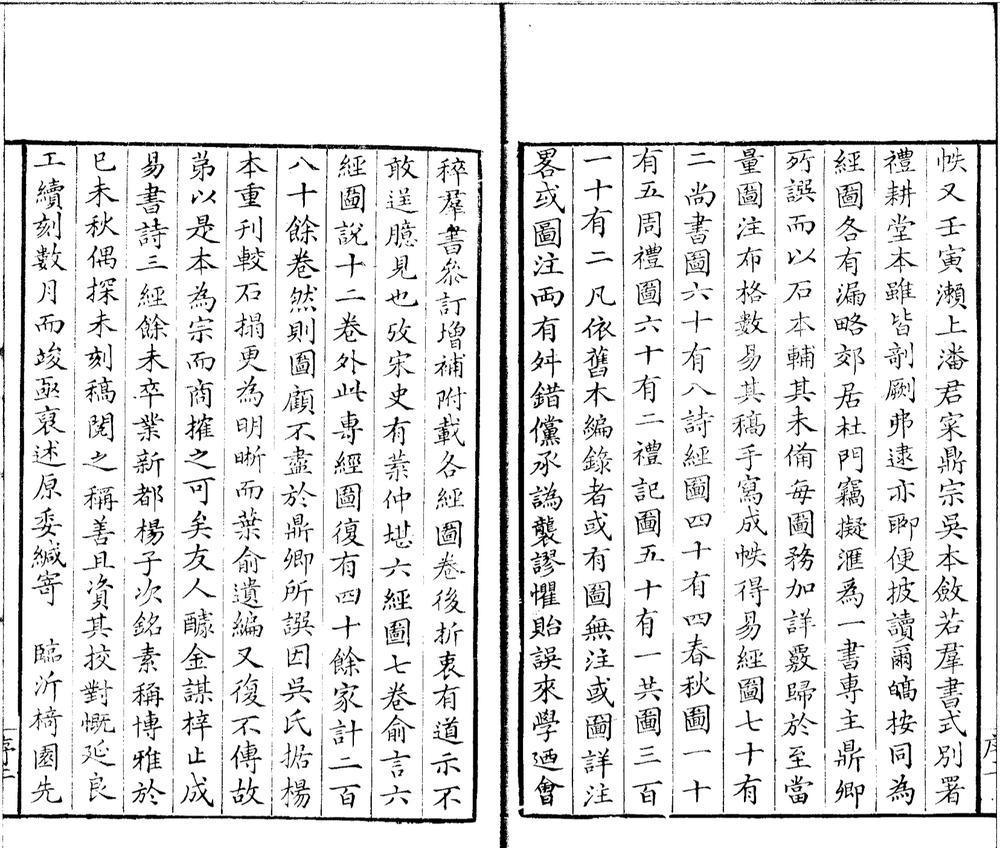 帙又壬寅瀨上潘君宷鼎宗吳本斂若羣書式別署
禮耕堂本雖皆剞劂弗逮亦聊便披讀爾皜按同為
經圖各有漏略郊居杜門竊擬滙爲一書專主鼎卿
所譔而以石本輔其未俻每圖務加詳覈歸於至當
量圖注布格數易其稿手寫成帙得易經圖七十有
二尚書圖六十有八詩經圖四十有四春秋圖一十
有五周禮圖六十有二禮記圖五十有一共圖三百
一十有二凡依舊本編錄者或有圖無注或圖詳注
畧或圖注両有舛錯儻承譌襲謬懼貽誤來學廼會
稡羣書叅訂增補附載各經圖卷後折衷有道示不
敢逞臆見也攷宋史有葉仲堪六經圖七卷俞言六
經圖說十二卷外此專經圖復有四十餘家計二百
八十餘卷然則圖顧不盡於鼎卿所譔因吳氏据楊
本重刊較石搨更為明晰而葉俞遺編又復不傳故
弟以是本為宗而商搉之可矣友人醵金謀梓止成
易書詩三經餘未卒業新都楊子次銘素稱博雅於
巳未秋偶探未刻稿閱之稱善且資其挍對慨延良
工續刻數月而竣亟裒述原委緘寄 臨沂椅園先
序二